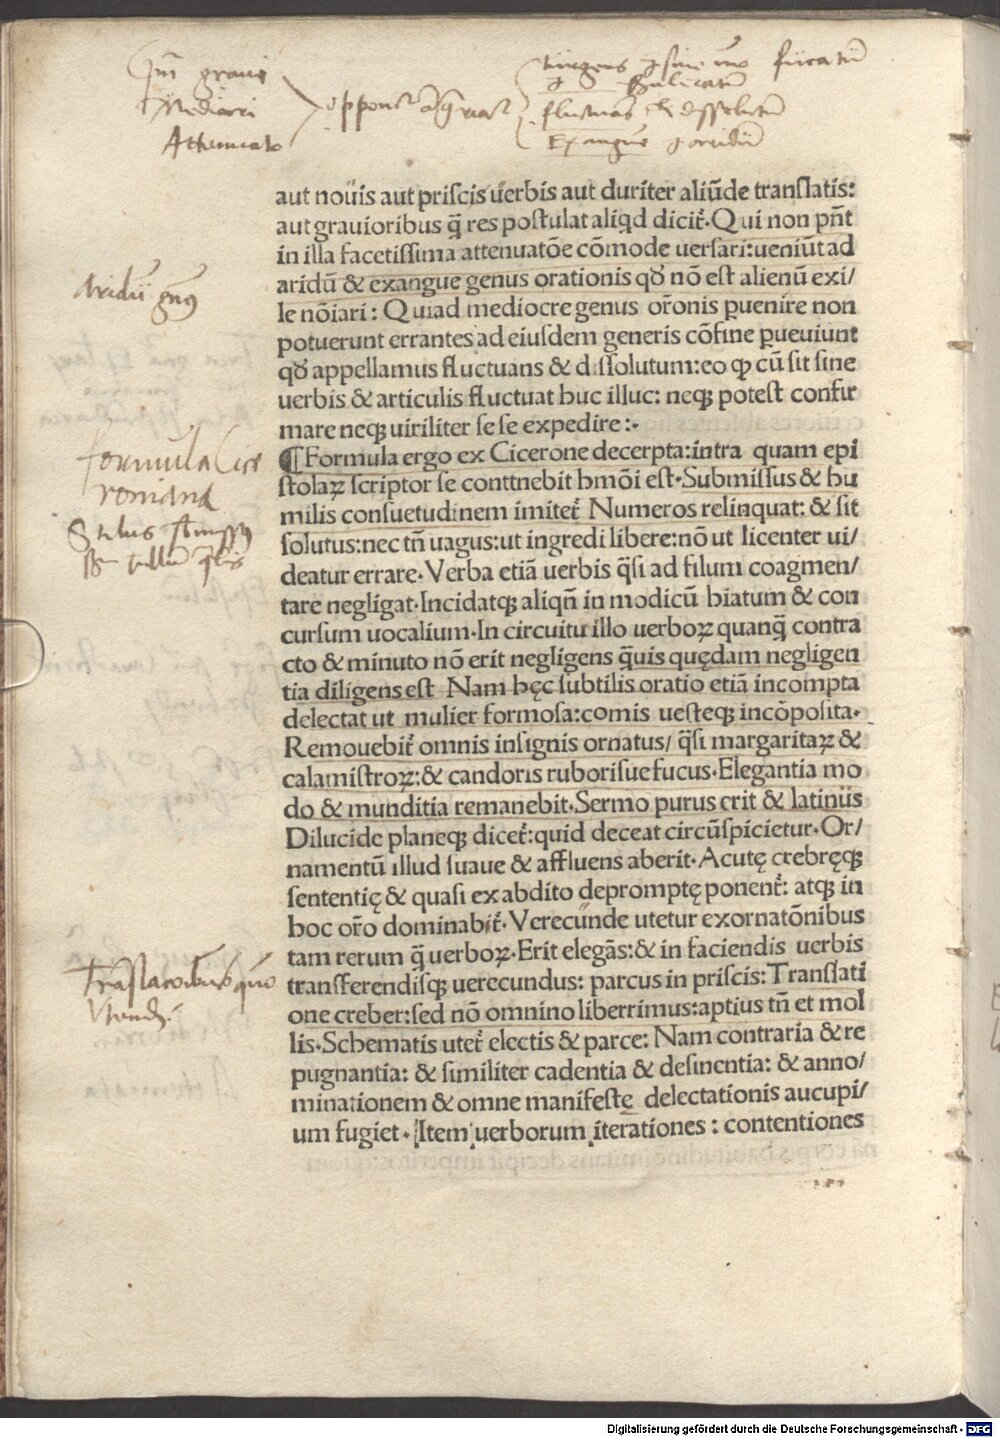 gravi
Mediocri
Attenuato
turgens
fucatū
Exangue
aut nouis aut priſcis uerbis aut duriter aliūde tranſlatis:
aut grauioribus q̄ res poſtulat aliqd dicit᷒·Qui non pn̄t
in illa facetiſſima attenuatōe cōmode uerſari:ueniūt ad
aridū & exangue genus orationis qđ nō eſt alienū exi/
le nōiari: Quiad mediocre genus or̄onis ꝑuenire non
potuerunt errantes ad eiuſdem generis cōfine ꝑueuiunt
qđ appellamus fluctuans & diſſolutum:eo ꝙ cū ſit ſine
uerbis & articulis fluctuat huc illuc: neqꝫ poteſt confir
mare neqꝫ uiriliter ſe ſe expedire:·
¶Formula ergo ex Cicerone decerpta:intra quam epi
ſtolaꝝ ſcriptor ſe conttnebit hmōi eſt·Submiſſus & hu
milis conſuetudinem imitet᷒ Numeros relinquat: & ſit
ſolutus:nec tn̄ uagus:ut ingredi libere:nō ut licenter ui/
deatur errare·Verba etiā uerbis q̄ſi ad filum coagmen/
tare negligat·Incidatqꝫ aliqn̄ in modicū hiatum & con
curſum uocalium·In circuitu illo uerboꝝ quanq̄ contra
cto & minuto nō erit negligens q̄uis quędam negligen
tia diligens eſt Nam hęc ſubtilis oratio etiā incompta
delectat ut mulier formoſa:comis ueſteqꝫ incōpoſita·
Remouebit᷒ omnis inſignis ornatus/ q̄ſi margaritaꝝ &
calamiſtroꝝ:& candoris ruboriſue fucus·Elegantia mo
do & munditia remanebit·Sermo purus erit & latinus
Dilucide planeqꝫ dicet᷒:quid deceat circūſpicietur·Or/
namentū illud ſuaue & affluens aberit·Acutę crebręqꝫ
ſententię & quaſi ex abdito depromptę ponent᷒: atqꝫ in
hoc or̄o dominabit᷒·Verecunde utetur exornatōnibus
tam rerum q̄ uerboꝝ·Erit elegās:& in faciendis uerbis
tranſferendiſqꝫ uerecundus: parcus in priſcis: Tranſlati
one creber:ſed nō omnino liberrimus:aptius tn̄ et mol
lis·Schematis utet᷒ electis & parce: Nam contraria & re
pugnantia: & ſimiliter cadentia & deſinentia: & anno/
minationem & omne manifeſtę delectationis aucupi/
um fugiet· Item uerborum iterationes: contentiones
Aridū
formula Cice
roniana
Stilus
Digitalisierung gefördert durch die Deutsche Forschungsgemeinschaft - DFG